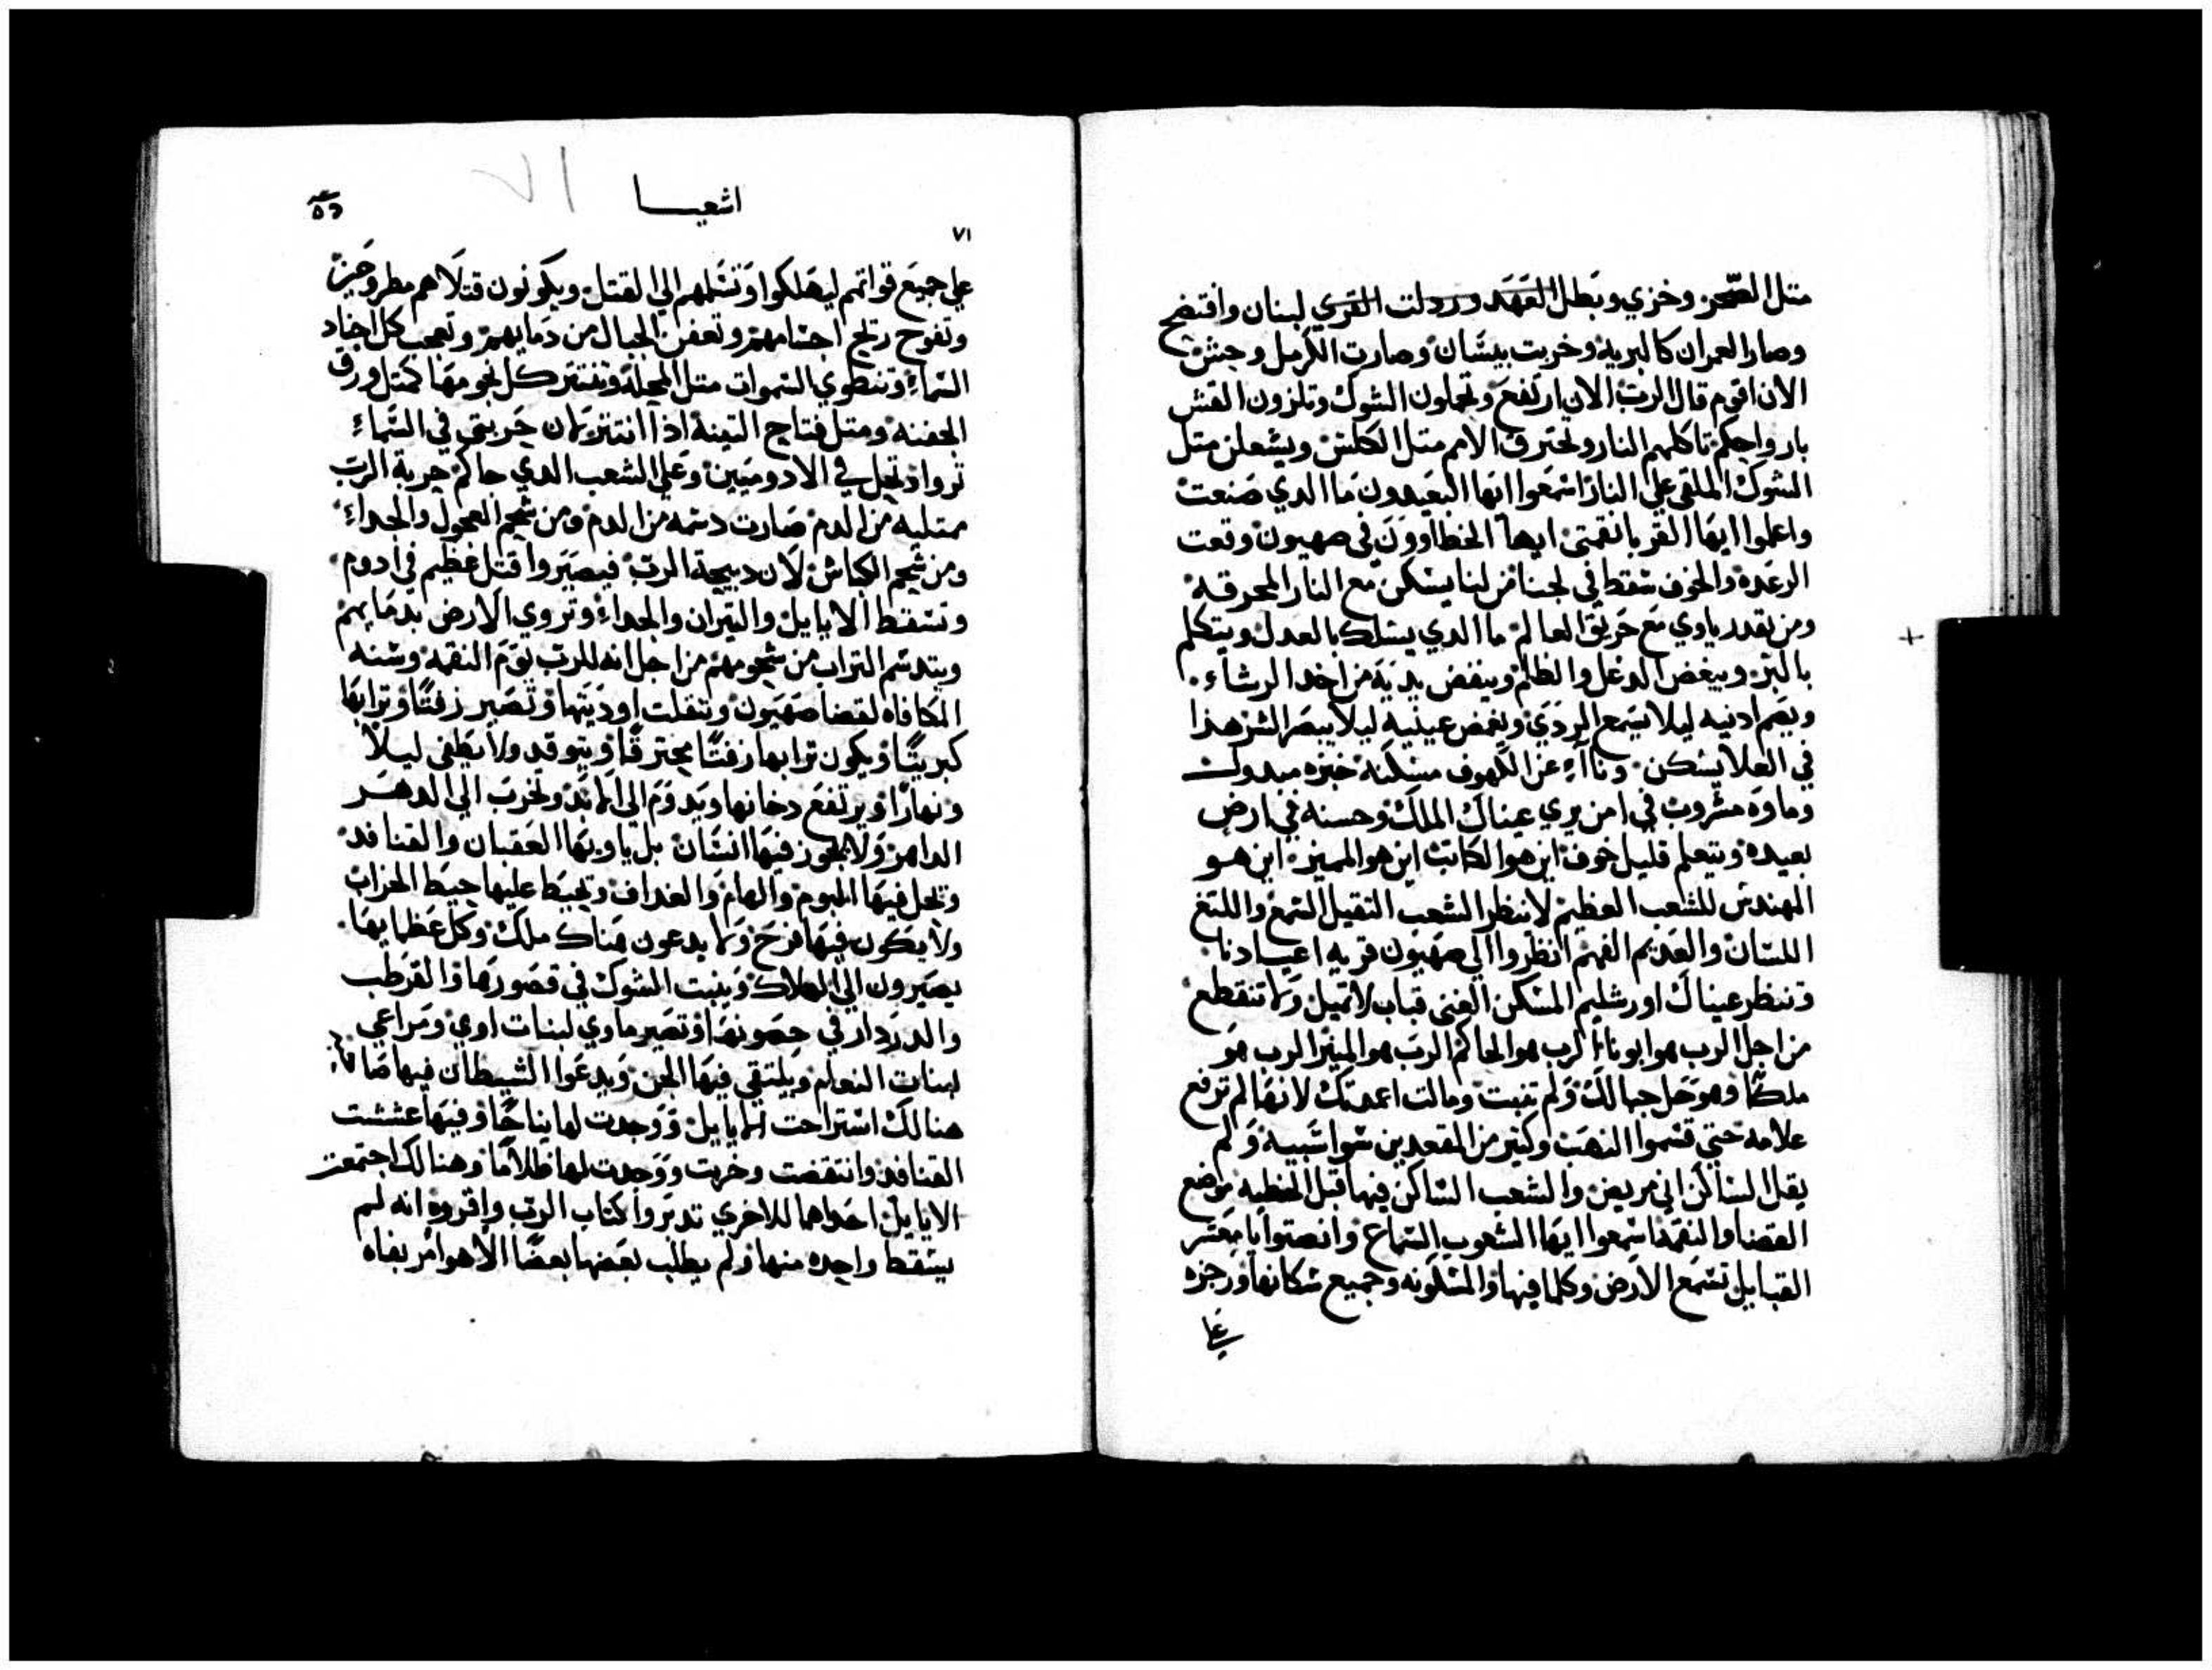 متل الصّحر وخزي وبطل العهد وردلت القري لبنان وافتضح
وصار العمران كالبريه وخربت بيسان وصارت الكرمل وجبش
الان اقوم قال الرب الان ارتفع وتحملون الشوك وتلزون القش
بارواحكم تاكلهم النار وتحترق الامم متل الكلس ويشعلن متل
الشوك الملقي علي النار اسمعوا ايها البعيدون ما الدي صنعت
واعلموا ايها القربا نقمتي ايها الخطاوون في صهيون وقعت
الرعده والخوف سقط في لجنا من لنا يسكن مع النار المحرقه
ومن يقدر ياوي مع حريق العالم ما الدي يسلك بالعدل ويتكلم
بالبر ويبغض الدغل والظلم وينفض يديه من اخد الرشاء
ويصم ادنيه ليلا يسمع الردي ويغمض عينيه ليلا يبصر الشر هذا
في العلا يسكن وناآء عن الكهوف مسكنه خبزه مبدول
وماوه مشروب في امن يري عيناك الملك وحسنه في ارض
بعيده ويتعلم قليل خوف اين هوا الكاتب اين هوالمميز اين هو
المهندس للشعب العظيم لا ينظر الشعب التقيل السمع واللتغ
اللسان والعديم الفهم انظروا الي صهيون قريه اعيادنا
وتنظر عيناك اورشليم المسكن الغني قباب لا تميل ولا تنقطع
من اجل الرب هوا بونا الرب هوالحاكم الرب هو المميز الرب هو
ملكنا وهو حل جبالك ولم تنبت ومالت اعمدتك لانها لم ترفع
علامه حتي قسموا النهب وكتير من المقعدين سوا شبيه ولم
يقل الساكن اني مريض والشعب الساكن فيها قبل الخطيه موضع
القضا والنقمه اسمعوا ايها الشعوب السماع وانصتوا يا معشر
القبايل تسمع الارض وكلما فيها والمسكونه وجميع سكانها ورجزه
علي
اشعيا
٧١
٧١
علي جميع قواتهم ليهلكوا وتسلمهم الي القتل ويكونون قتلاهم مطروحين
وتفوح ريح اجسامهم وتعفن الجبال من دمايهم وتعجب كل اجناد
السماء وتنطوي السموات متل المجله وتنتتر كل نجومها كمتل ورق
الجفنه ومتل فتاح التينه اذا انتتر لان حربتي في السماء
تروا وتحل في الادوميين وعلي الشعب الدي حاكم حربة الرب
ممتليه من الدم صارت دسمه من الدم ومن شحم العجول والجداء
ومن شحم الكباش لان دبيحة الرب فيصيروا قتل عظيم في ادوم
وتسقط الايايل والتيران والجداء وتروي الارض بدمايهم
ويتدسم التراب من شحومهم من اجل انه للرب يوم النقمه وسنه
المكافاه لقضا صهيون وتنفلت اوديتها وتصير زفتًا وترابها
كبريتًا ويكون ترابها زفتًا محترقًا ويتوقد ولا يطفي ليلًا
ونهارًا ويرتفع دخانها ويدوم الي الابد وتخرب الي الدهر
الداهر ولا يجوز فيها انسان بل ياويها العقبان والقنافد
وتحل فيها البوم والهام والغداف ويحيط عليها حيط الخراب
ولا يكون فيها فرح ولا يدعون هناك ملك وكل عظمايها
يصيرون الي الهلاك وينبت الشوك في قصورها والقرطب
والدردار في حصونها وتصير ماوي لبنات اوي ومراعي
لبنات النعام ويلتقي فيها الجن ويدعوا الشيطان فيها صا
هنالك استراحت الايايل ووجدت لها نياحًا وفيها عششت
القنافد وانتقضت وخربت ووجدت لها ظلامًا وهنالك اجتمعت
الايايل احداهما للاخري تدبروا كتاب الرب واقروه انه لم
يسقط واحده منها ولم يطلب بعضها بعضًا الا هو امر بفاه